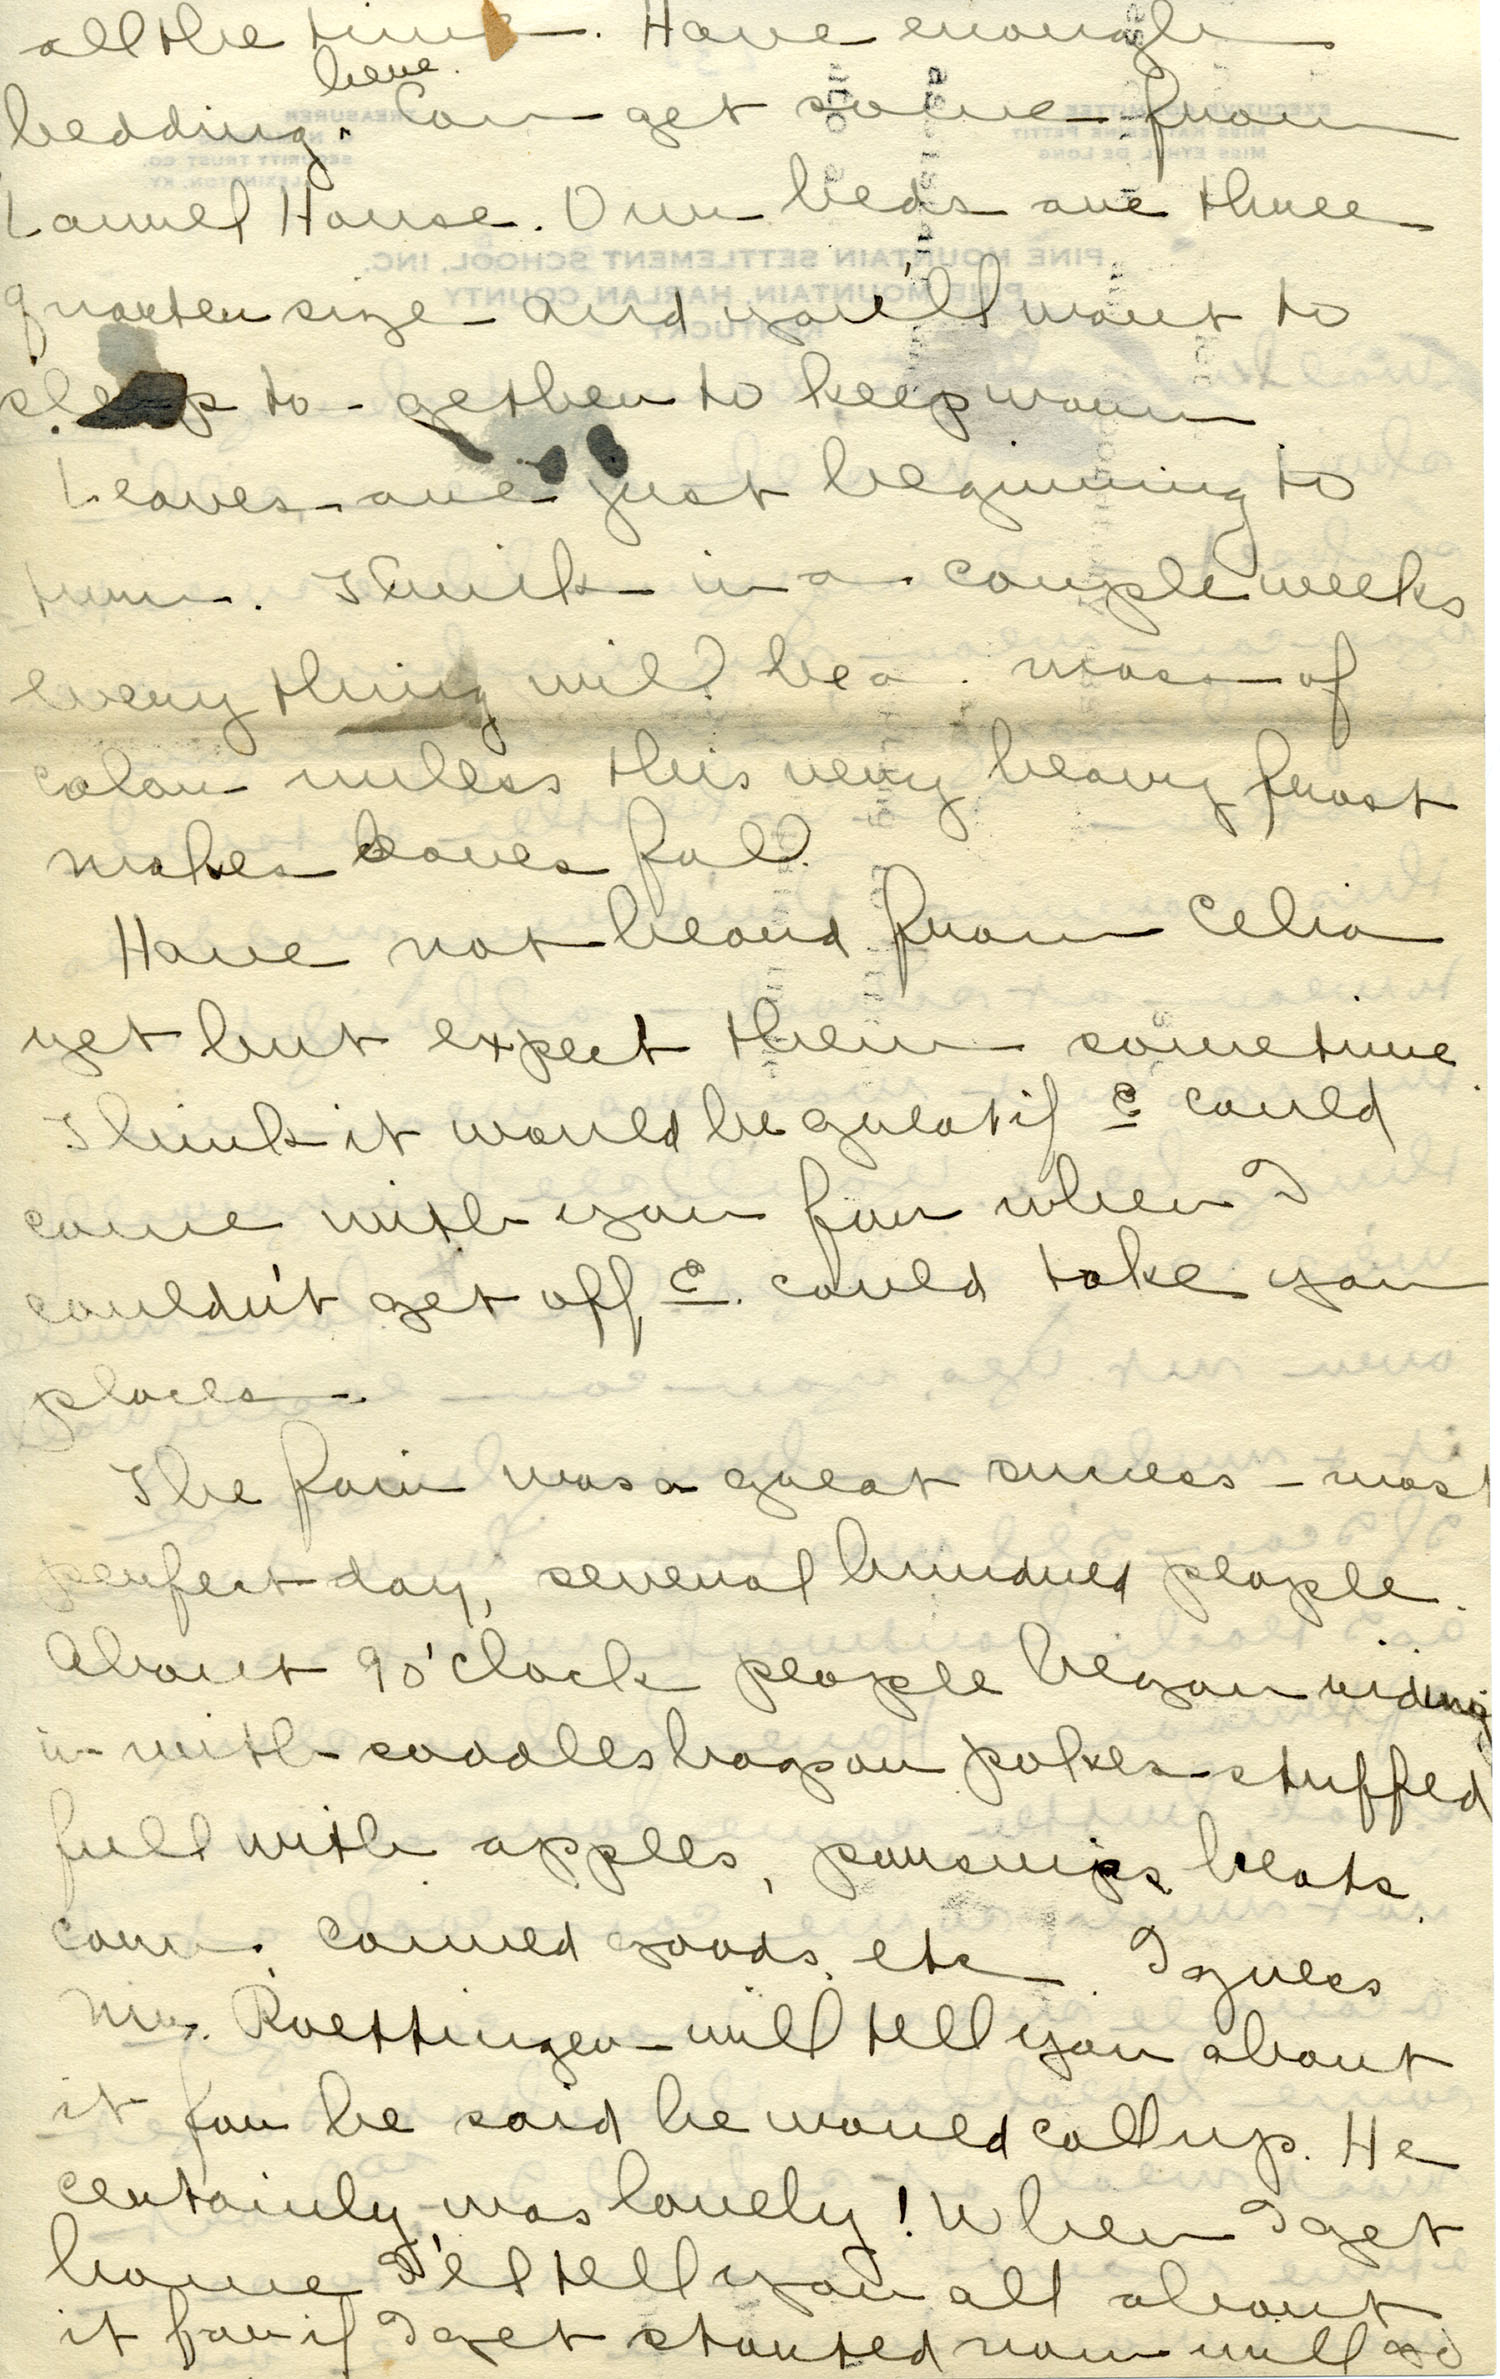 all the time. Have enough
here.
bedding. Can get some from
Laurel House. Our beds are three
quarter size and you'll want to
sleep to-gether to keep warm
Leaves are just beginning to
turn. Think in a couple weeks
every thing will be a mass of
color unless this very heavy frost
makes leaves fall.
Have not heard from Celia
yet but expect them sometime.
Think it would be great if C could
come with you for when I
couldn't get off C. could take you
places.
The fair was a great success - most
perfect day, several hundred people.
About 9 o'clock people began riding
in with saddlesbags or pokes stuffed
full with apples, parsnips, beats,
corn, canned goods, etc. I guess
Mr. Roettinger will tell you about
it for he said he would call up. He
certainly was lovely! When I get
home I'll tell you all about
it for if I get started now will
EXECUTIVE COMMITTEE
MISS KATHERINE PETTIT
MISS ETHEL DE LONG
TREASURER
SECURITY TRUST CO.
LEXINGTON, KY.
PINE MOUNTAIN SETTLEMENT SCHOOL, INC.
PINE MOUNTAIN, HARLAN COUNTY
KENTUCKY